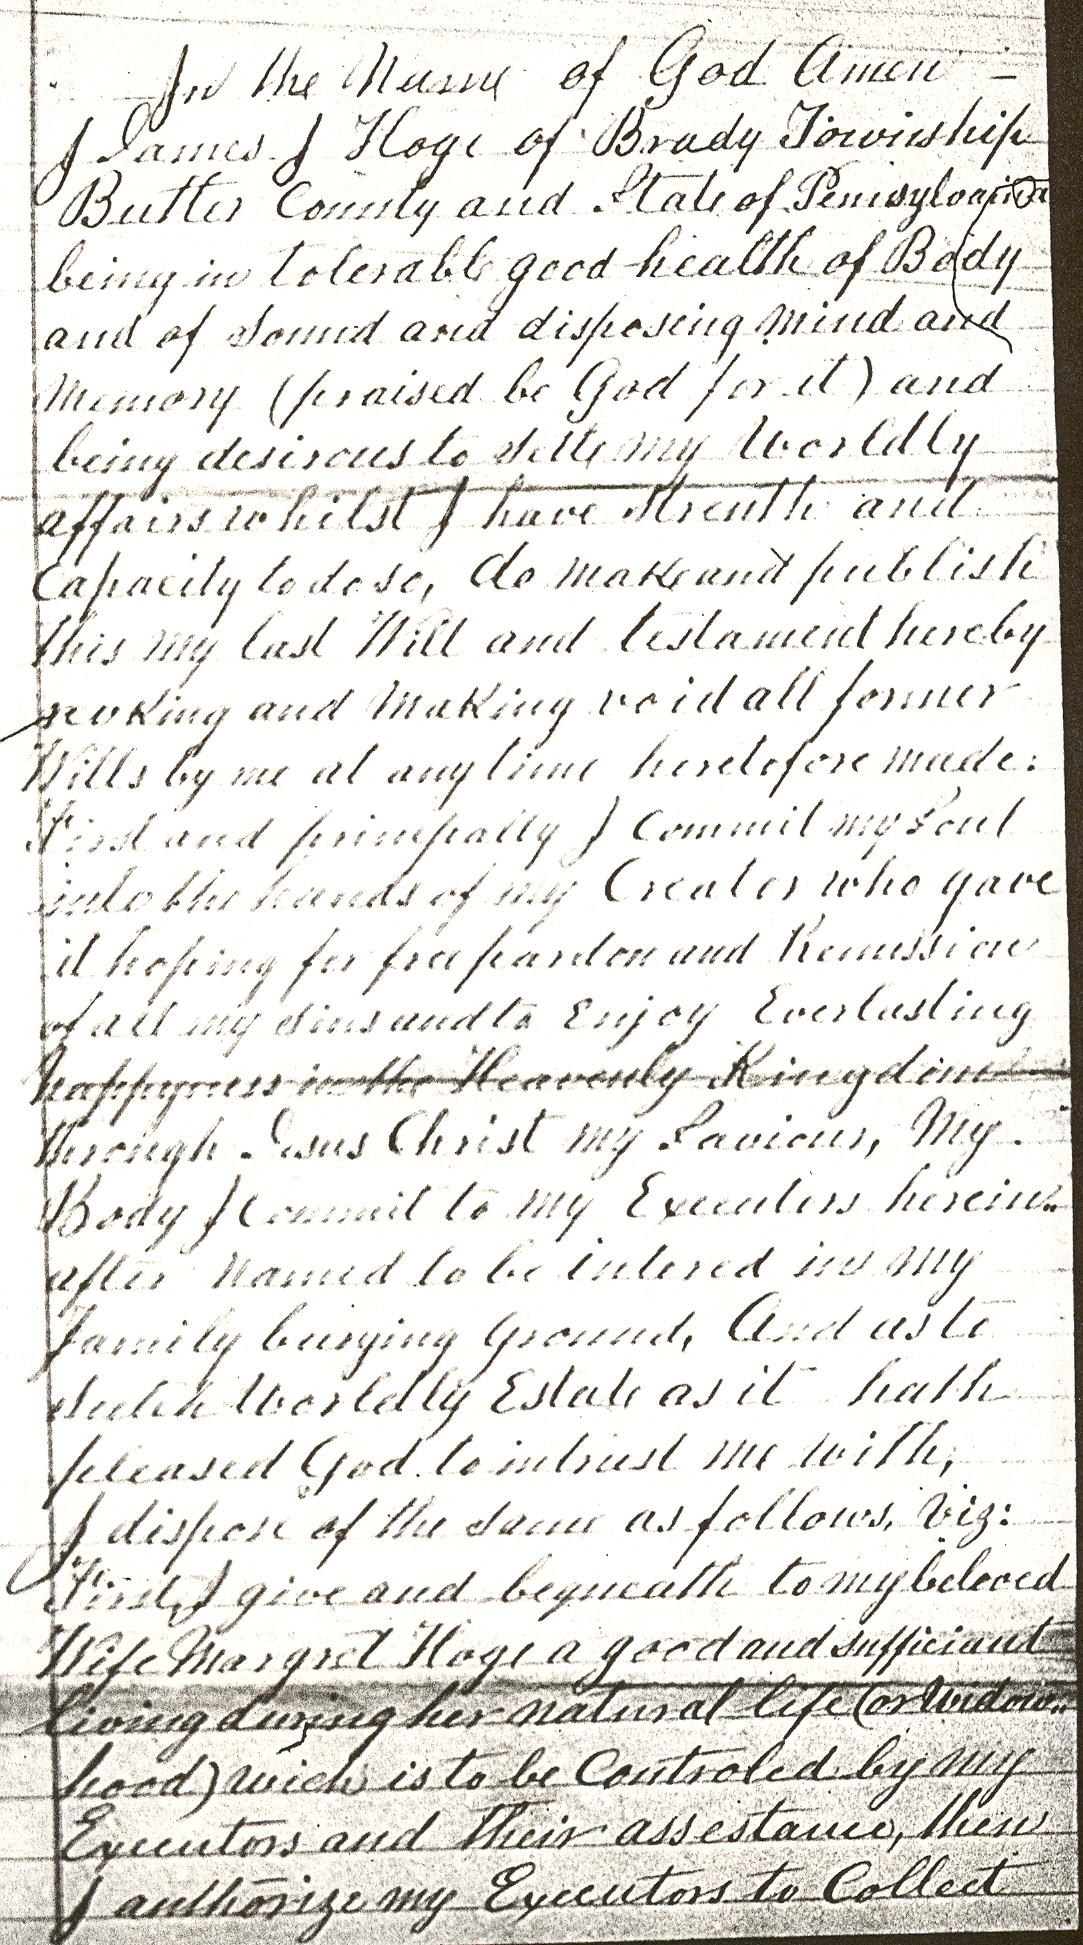 In the Name of God Amen –
I James J Hoge of Brady Township
Butler County and State of Pennsylvania
being in tolerable good health of Body
and of Sound and disposing mind and
Memory (praised be God for it) and
being desirous to Settle my Worldly
affairs whilst I have Strenth and
Capacity to do so, do make and publish
this my last Will and testament hereby
revoking and Making void all former
Wills by me at any time heretofore made:
First and principally I Commit my Soul
into the hands of my Creator who gave
it hoping for free pardon and Remission
of all my Sins and to Enjoy Everlasting
happyness in the Heavenly Kingdom
through Jesus Christ my Saviour, My
Body I Commit to my Executors herein..
after Named to be intered in my
Family burying Ground, And as to
Such Worldly Estate as it hath
pleased God to intrust me with,
I dispose of the Same as follows, Viz:
First, I give and bequeath to my beloved
Wife Margret Hoge a good and sufficiant
living during her natural life (or Widow..
hood) wich is to be Controled by my
Executors and their assestance, then
I authorize my Executors to Collect